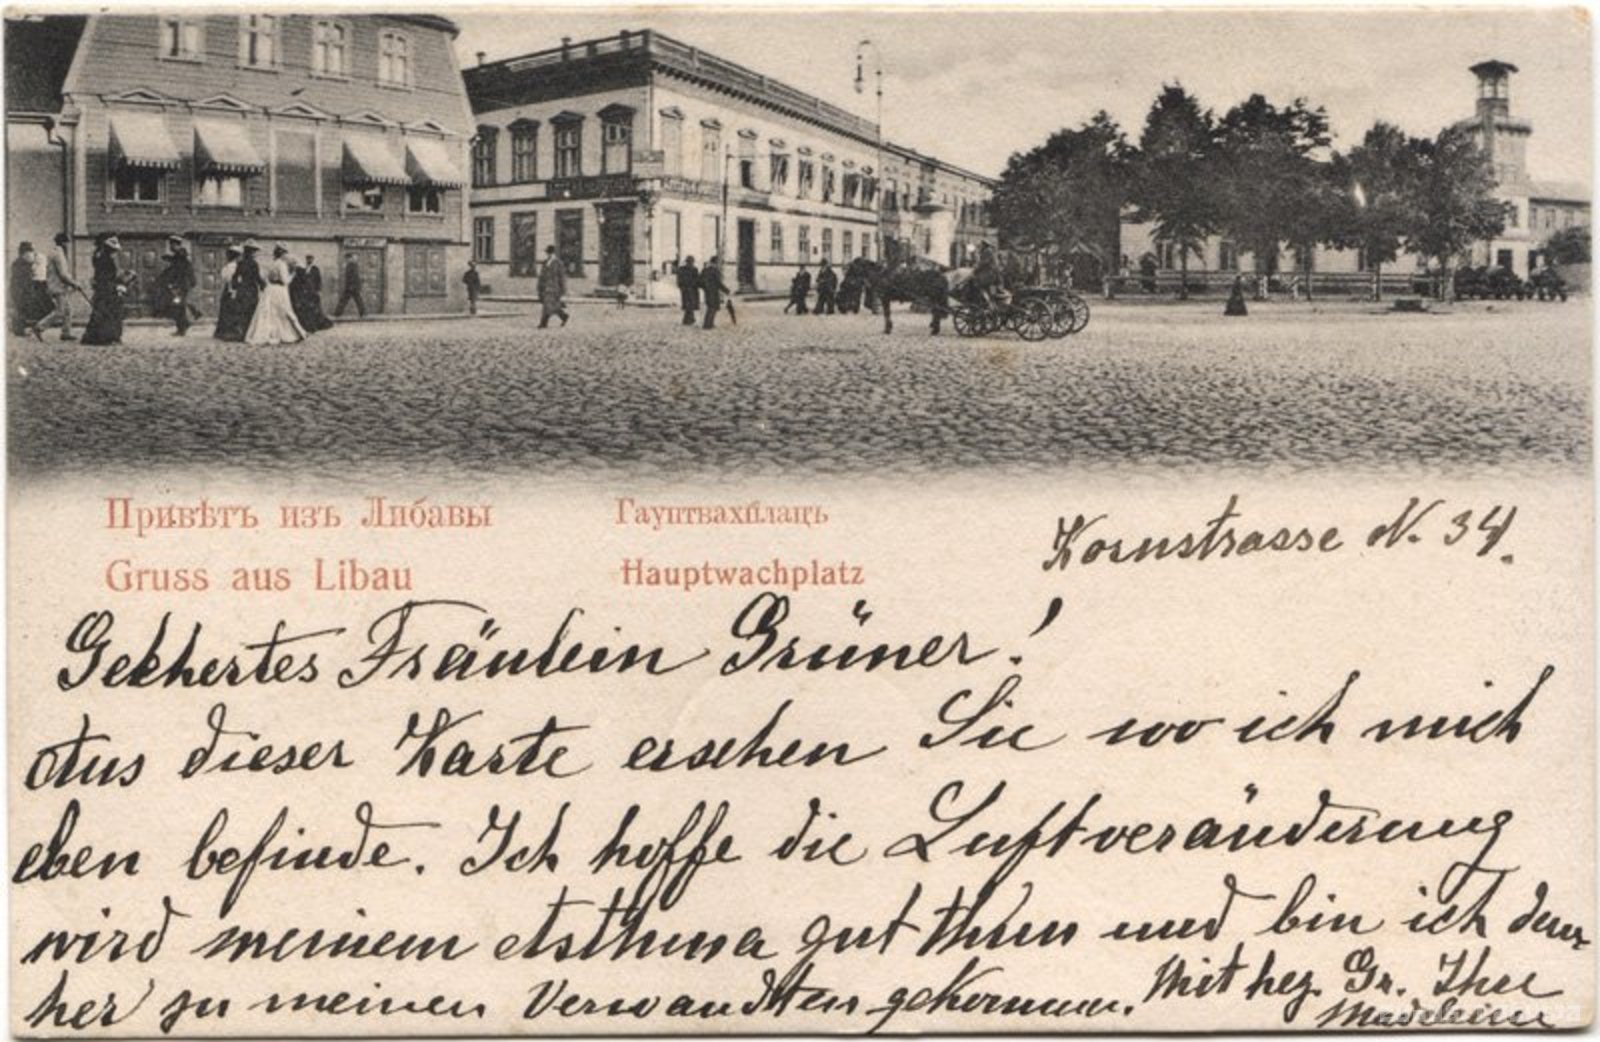 Привѣтъ изъ Либавы
Гауптвахплацъ
Gruss aus Libau
Hauptwachplatz
Kornstrasse N. 34.
Geehertes Fräulein Grüner!
Aus dieser Karte ersehen Sie wo ich mich
eben befinde. Ich hoffe die Luftveränderung
wird meinem Asthma gut thun und bin ich
her zu meinen Verwandten gekommen. Mit hez. Gr. Ihre
Madeleine